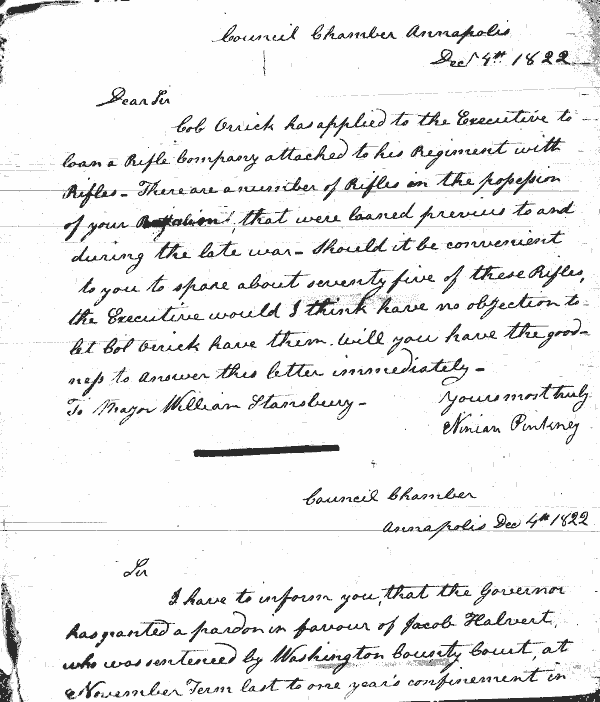 Council Chamber Annapolis
Decr 4th 1822
Dear Sir
Col Orrick has applied to the Executive to
loan a Rifle Company attached to his Regiment with
Rifles - There are a number of Rifles in the possession
of your that were loaned previous to and
during the late war - Should it be convenient
to you to spare about seventy five of these Rifles,
the Executive would I think have no objection to
let Col Orrick have them. Will you have the good-
ness to answer this letter immediately -
To Mayor William Stansbury -
Yours most truly
Ninian Pinkney
Council Chamber
Annapolis Dec 4th 1822
Sir
I have to inform you, that the Governor
has granted a pardon in favour of Jacob Halvert,
who was sentenced by Washington County Court, at
November Term last to one year's confinement in